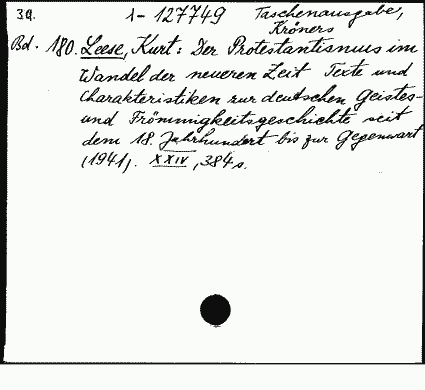 39. 1-127749 Taschenausgabe,
Kröners
Bd. 180. Leese, Kurt: Der Protestantismus im
Wandel der neueren Zeit Texte und
Charakteristiken zur deutschen Geistes-
und Frömmigkeitsgeschichte seit
dem 18. Jahrhundert bis zur Gegenwart
(1941). XXIV, 384 s.